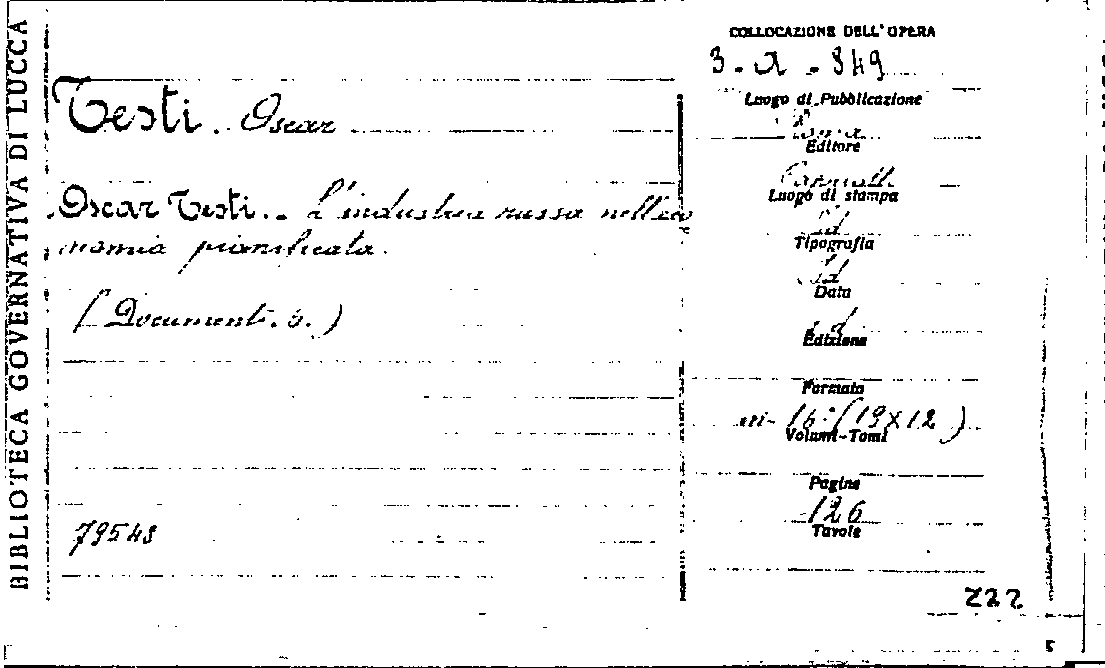 BIBLIOTECA GOVERNATIVA DI LUCCA
COLLOCAZIONE DELL'OPERA
3-A-349
Testi. Oscar
Luogo di Pubblicazione
Editore
Oscar Testi.- L'industria russa nell'eco
nomia pianificata.
(Documenti. 6.)
Luogo di stampa
Id
Tipografia
Id
Data
Id
Edizione
Formato
in-16°(19x12)
Volumi-Tomi
Pagine
126
Tavole
79548
222